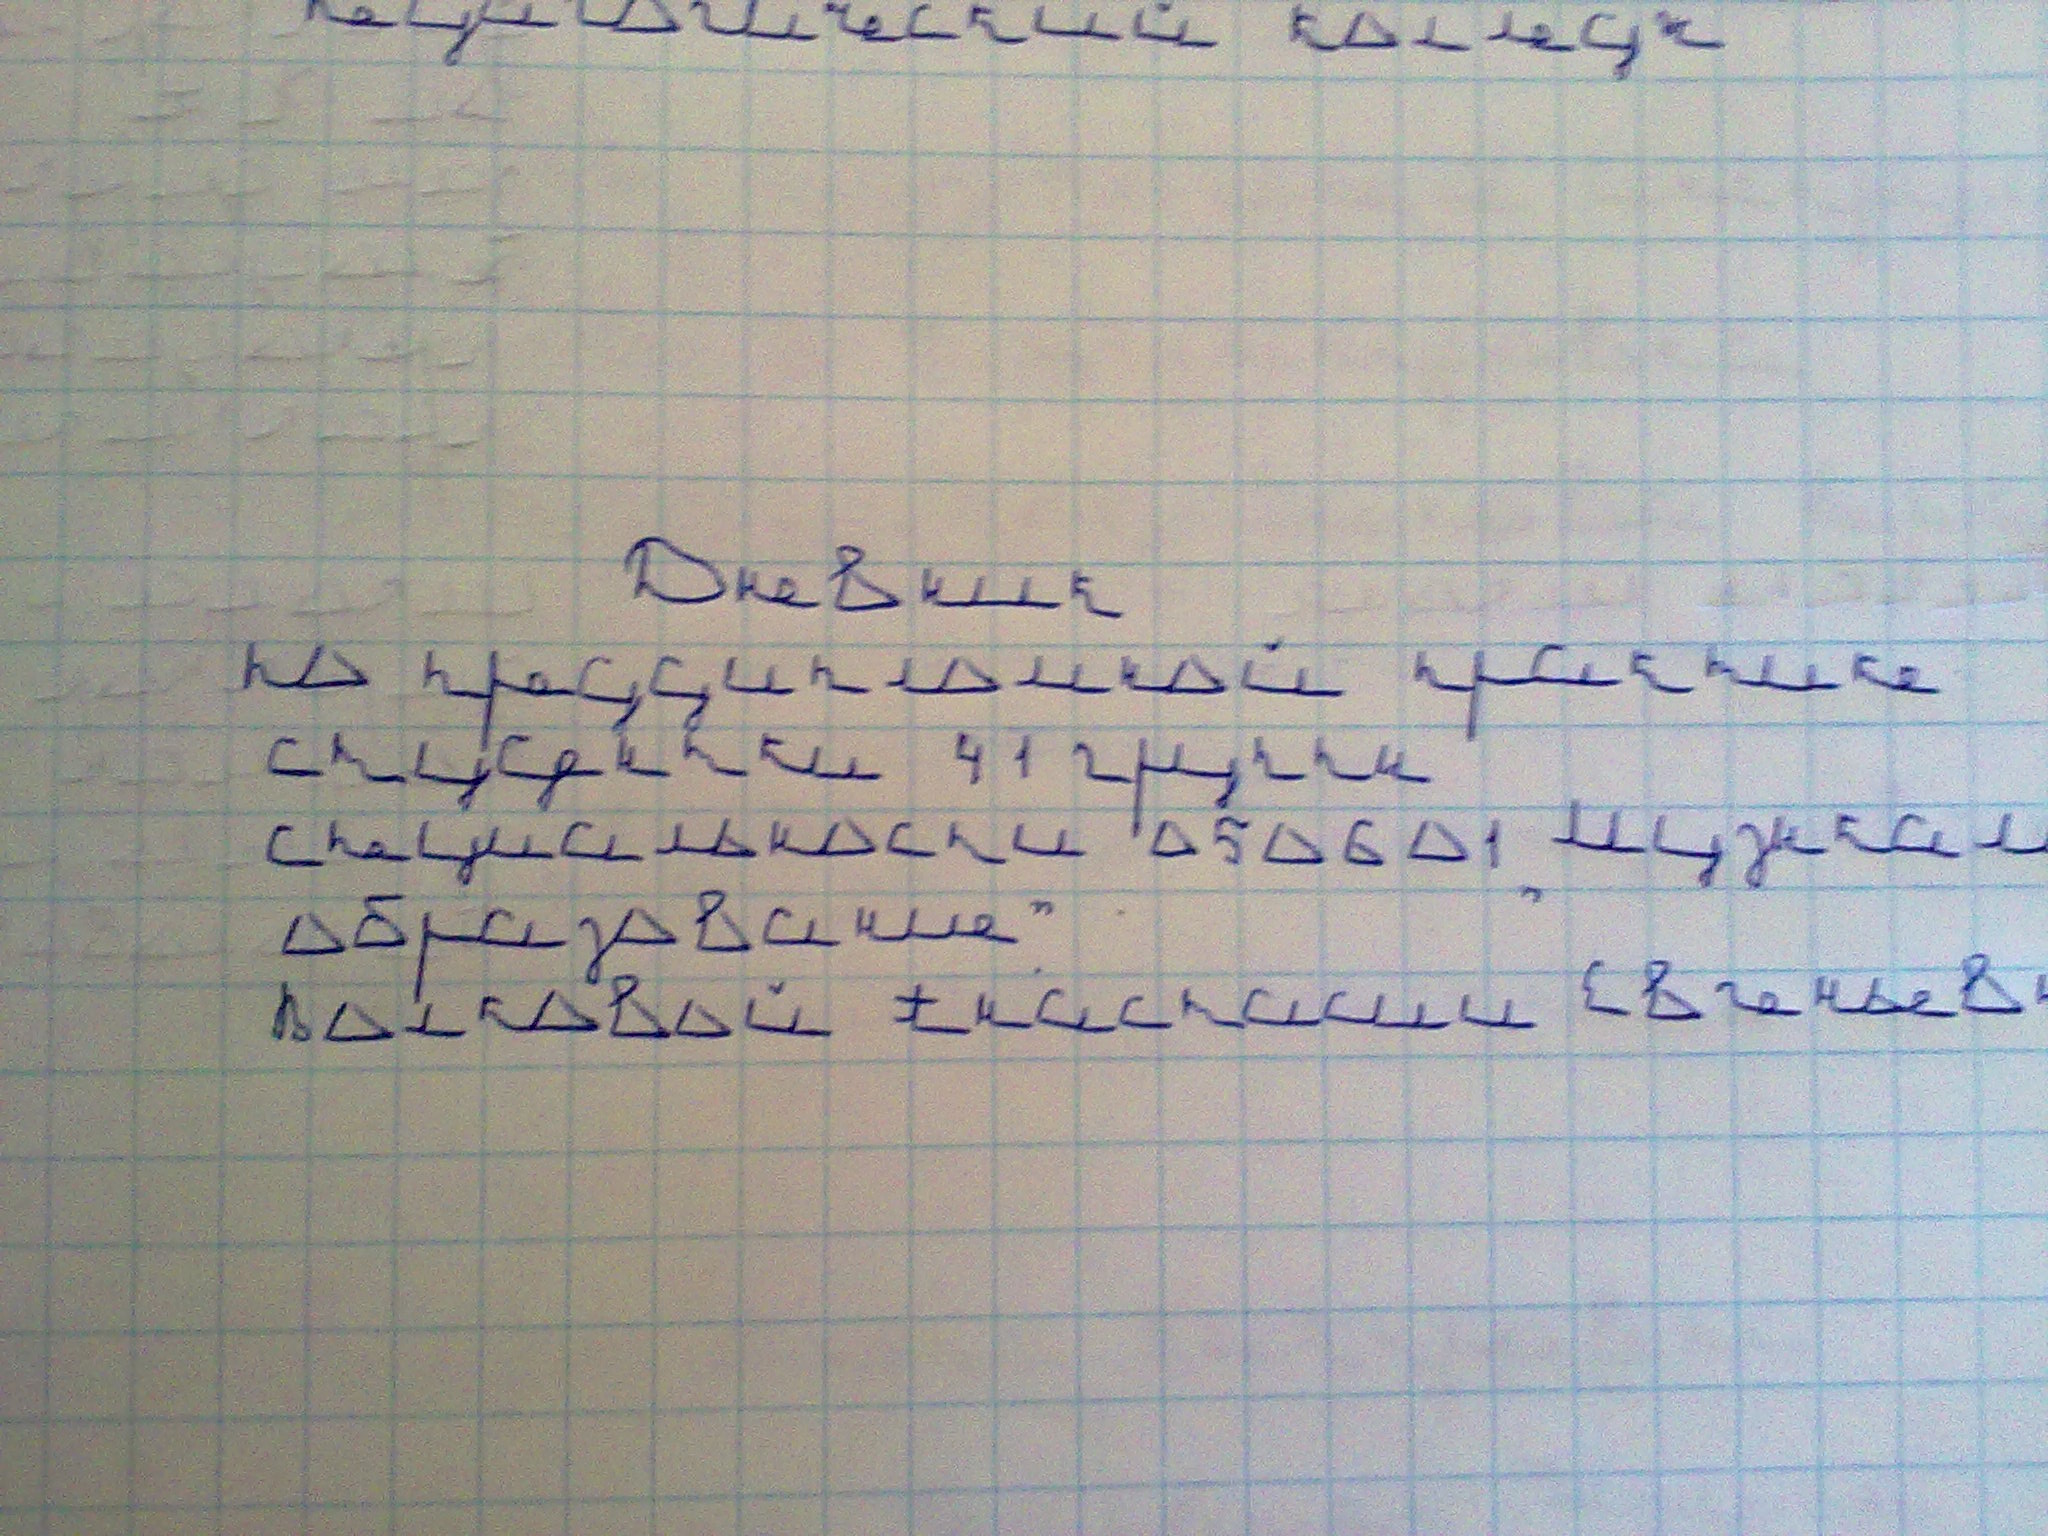 педагогический колледж
Дневник
по преддипломной практике
студентки 41 группы
специальности 050601 „музыкаль
образование"
Волковой Анастасии Евгеньевн